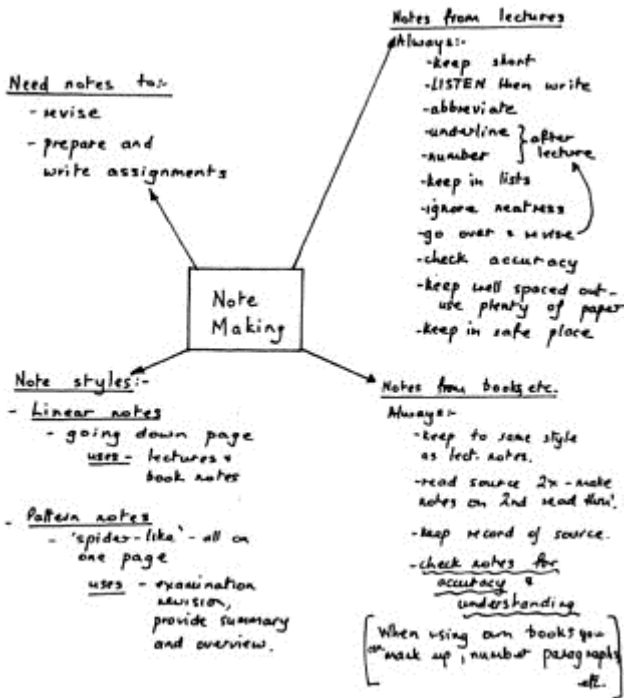 Need notes to:-
- revise
- prepare and
write assignments
Notes from lectures
Always:-
-keep short
-LISTEN then write
-abbreviate
-underline
-number
after
lecture
-keep in lists
-ignore neatness
-go over & revise
-check accuracy
-keep well spaced out-
use plenty of paper
-keep in safe place
Note
Making
Note styles:-
- Linear notes
- going down page
uses - lectures &
book notes
- Pattern notes
- 'spider-like' - all on
one page
uses - examination
revision,
provide summary
and overview.
Notes from books etc.
Always:-
-keep to same style
as lect. notes.
-read source 2x - make
notes on 2nd read thro'.
-keep record of source.
-check notes for
accuracy &
understanding
When using own books you
can mark up, number paragraphs
etc.